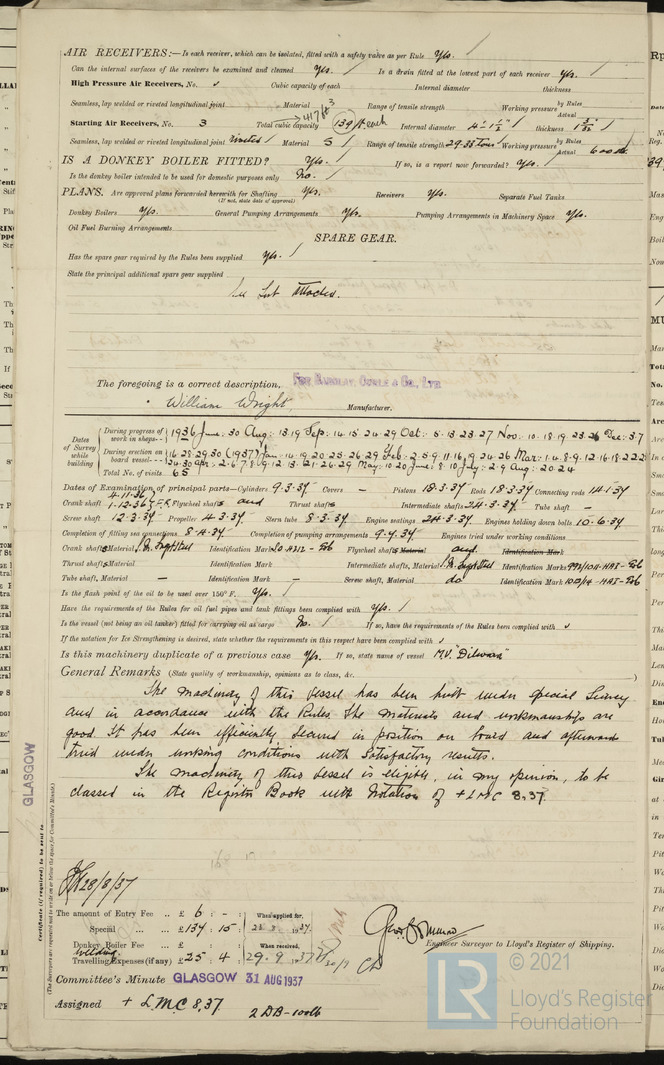 AIR RECEIVERS:— Is each receiver, which can be isolated, fitted with a safety valve as per Rule Yes. /
Can the internal surfaces of the receivers be examined and cleaned Yes. / Is a drain fitted at the lowest part of each receiver Yes. /
High Pressure Air Receivers, No. Cubic capacity of each Internal diameter thickness
Seamless, lap welded or riveted longitudinal joint Material Range of tensile strength Working pressure by Rules Actual
Starting Air Receivers, No. 3 Total cubic capacity 417 ft³ (139 ft each) Internal diameter 4'-1½" thickness 1 3/32"
Seamless, lap welded or riveted longitudinal joint riveted Material S Range of tensile strength 29-33 tons Working pressure by Rules Actual 600 lb.
IS A DONKEY BOILER FITTED? Yes. / If so, is a report now forwarded? Yes. /
Is the donkey boiler intended to be used for domestic purposes only No. /
PLANS. Are approved plans forwarded herewith for Shafting Yes. Receivers Yes. Separate Fuel Tanks
(If not, state date of approval)
Donkey Boilers Yes. General Pumping Arrangements Yes. Pumping Arrangements in Machinery Space Yes.
Oil Fuel Burning Arrangements
SPARE GEAR.
Has the spare gear required by the Rules been supplied Yes. /
State the principal additional spare gear supplied
See List Attached.
The foregoing is a correct description,
FOR BARCLAY, CURLE & CO., LTD
William Wright, Manufacturer.
Dates of Survey while building
During progress of work in shops-- 1936 June: 30 Aug: 13.19 Sep: 14.15.24.29 Oct: 5.13.23.27 Nov: 10.18.19.23.26 Dec: 3.7
During erection on board vessel--- 16.28.29.30 (1937) Jan: 14.19.20.25.26.29 Feb: 2.5.9.11.16.19.24.26 Mar: 1.4.8.9.12.16.18.22
24.30 Apr: 2.6.7.8.9.12.13.21.26.29 May: 10.20 June: 8.10 July: 2.9 Aug: 20.24
Total No. of visits 65
Dates of Examination of principal parts—Cylinders 9.3.37 Covers – Pistons 18.3.37 Rods 18.3.37 Connecting rods 14.1.37
Crank shaft 4.11.36 1.12.36 Flywheel shaft and Thrust shaft Intermediate shafts 24.3.37 Tube shaft –
Screw shaft 12.3.37 Propeller 4.3.37 Stern tube 8.3.37 Engine seatings 24.3.37 Engines holding down bolts 10.6.37
Completion of fitting sea connections 8.4.37 Completion of pumping arrangements 9.4.37 Engines tried under working conditions
Crank shaft Material S.M. Ingot Steel Identification Mark Flywheel shaft Material and Identification Mark
Thrust shaft Material Identification Mark Intermediate shafts, Material S.M. Ingot Steel Identification Marks
Tube shaft, Material – Identification Mark – Screw shaft, Material do Identification Mark
Is the flash point of the oil to be used over 150° F. Yes. /
Have the requirements of the Rules for oil fuel pipes and tank fittings been complied with Yes. /
Is the vessel (not being an oil tanker) fitted for carrying oil as cargo No. / If so, have the requirements of the Rules been complied with
If the notation for Ice Strengthening is desired, state whether the requirements in this respect have been complied with
Is this machinery duplicate of a previous case Yes. If so, state name of vessel M.V. "Dilwara"
General Remarks (State quality of workmanship, opinions as to class, &c.
The machinery of this Vessel has been built under Special Survey
and in accordance with the Rules. The materials and workmanship are
good. It has been efficiently secured in position on board and afterwards
tried under working conditions with satisfactory results.
The machinery of this vessel is eligible, in my opinion, to be
classed in the Register Book with Notation of + LMC 8.37.
GLASGOW
Certificate (if required) to be sent to
(The Surveyors are requested not to write on or below the space for Committee's Minute.)
28/8/37
The amount of Entry Fee .. £ 6 : - : When applied for,
Special .. £134 : 15 : 1937.
Donkey Boiler Fee .. £ : : When received,
welding.
Travelling Expenses (if any) £25 : 4 : 29.9.1937 30/9
Engineer Surveyor to Lloyd's Register of Shipping.
Committee's Minute GLASGOW 31 AUG 1937
Assigned + L.M.C 8,37.
2 DB-100lb
LR
© 2021
Lloyd's Register
Foundation